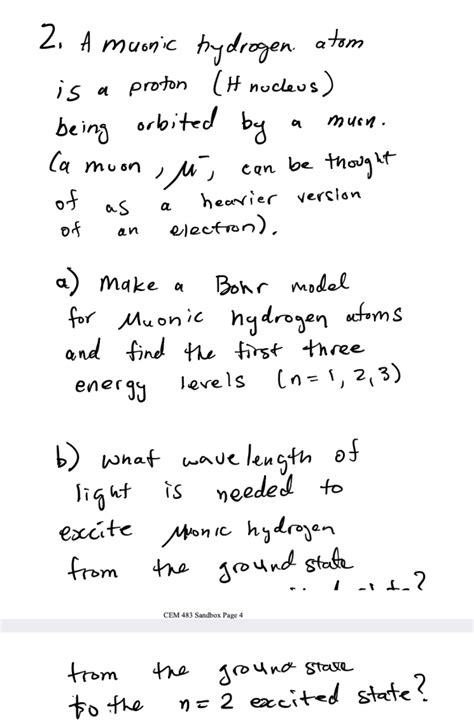 2. A muonic hydrogen atom
is a proton (H nucleus)
being orbited by a muon.
(a muon, μ⁻, can be thought
of as a heavier version
of an electron).
a) Make a Bohr model
for Muonic hydrogen atoms
and find the first three
energy levels (n=1,2,3)
b) what wavelength of
light is needed to
excite muonic hydrogen
from the ground state
CEM 483 Sandbox Page 4
from the ground state
to the n=2 excited state?